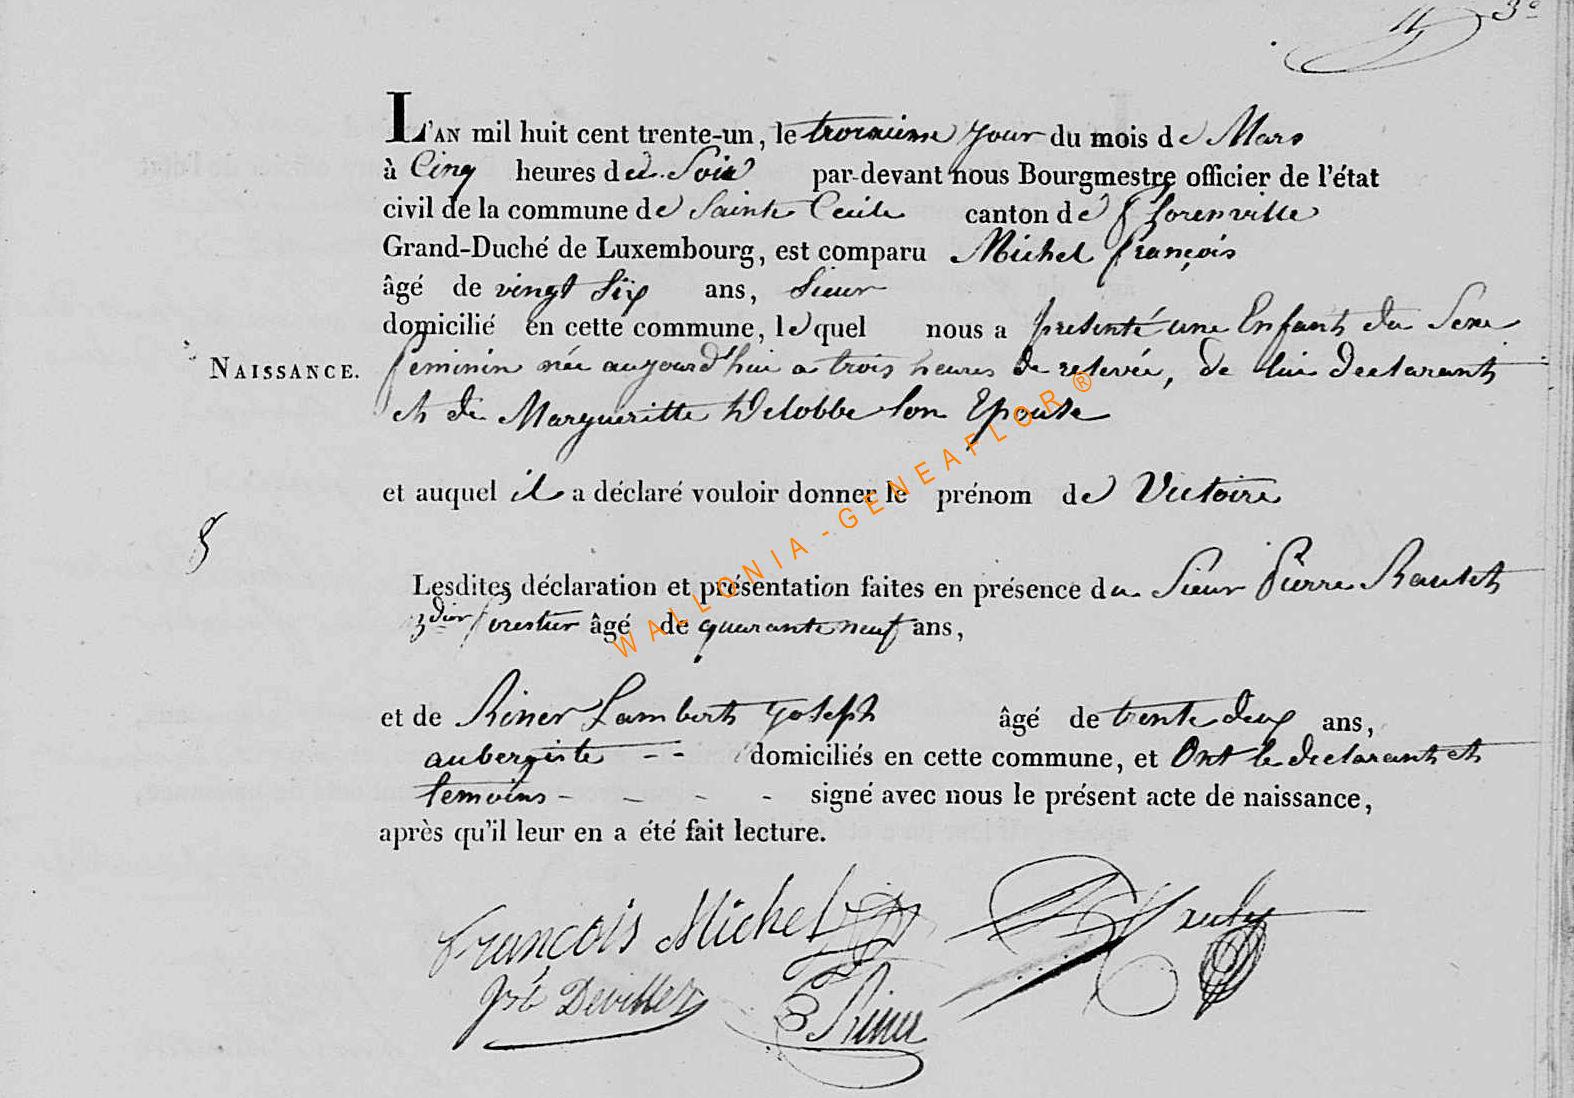 3e
L'AN mil huit cent trente-un, le troisieme jour du mois de Mars
à Cinq heures du Soir par-devant nous Bourgmestre officier de l'état
civil de la commune de Sainte Cecile canton de Florenville
Grand-Duché de Luxembourg, est comparu Michel françois
âgé de vingt Six ans, Sieur
domicilié en cette commune, lequel nous a presenté une Enfant du Sexe
NAISSANCE. feminin née aujourd'hui a trois heures de relevée, de lui declarant
et de Margueritte Delobbe son Epouse
et auquel il a déclaré vouloir donner le prénom de Victoire
Lesdites déclaration et présentation faites en présence du Sieur Pierre
forestier âgé de quarante neuf ans,
et de Riner Lambert Joseph âgé de trente deux ans,
aubergiste -- domiciliés en cette commune, et Ont le declarant et
temoins - - - - signé avec nous le présent acte de naissance,
après qu'il leur en a été fait lecture.
françois Michel
Jph Devillez Riner
WALLONIA - GENEAFLOR ®